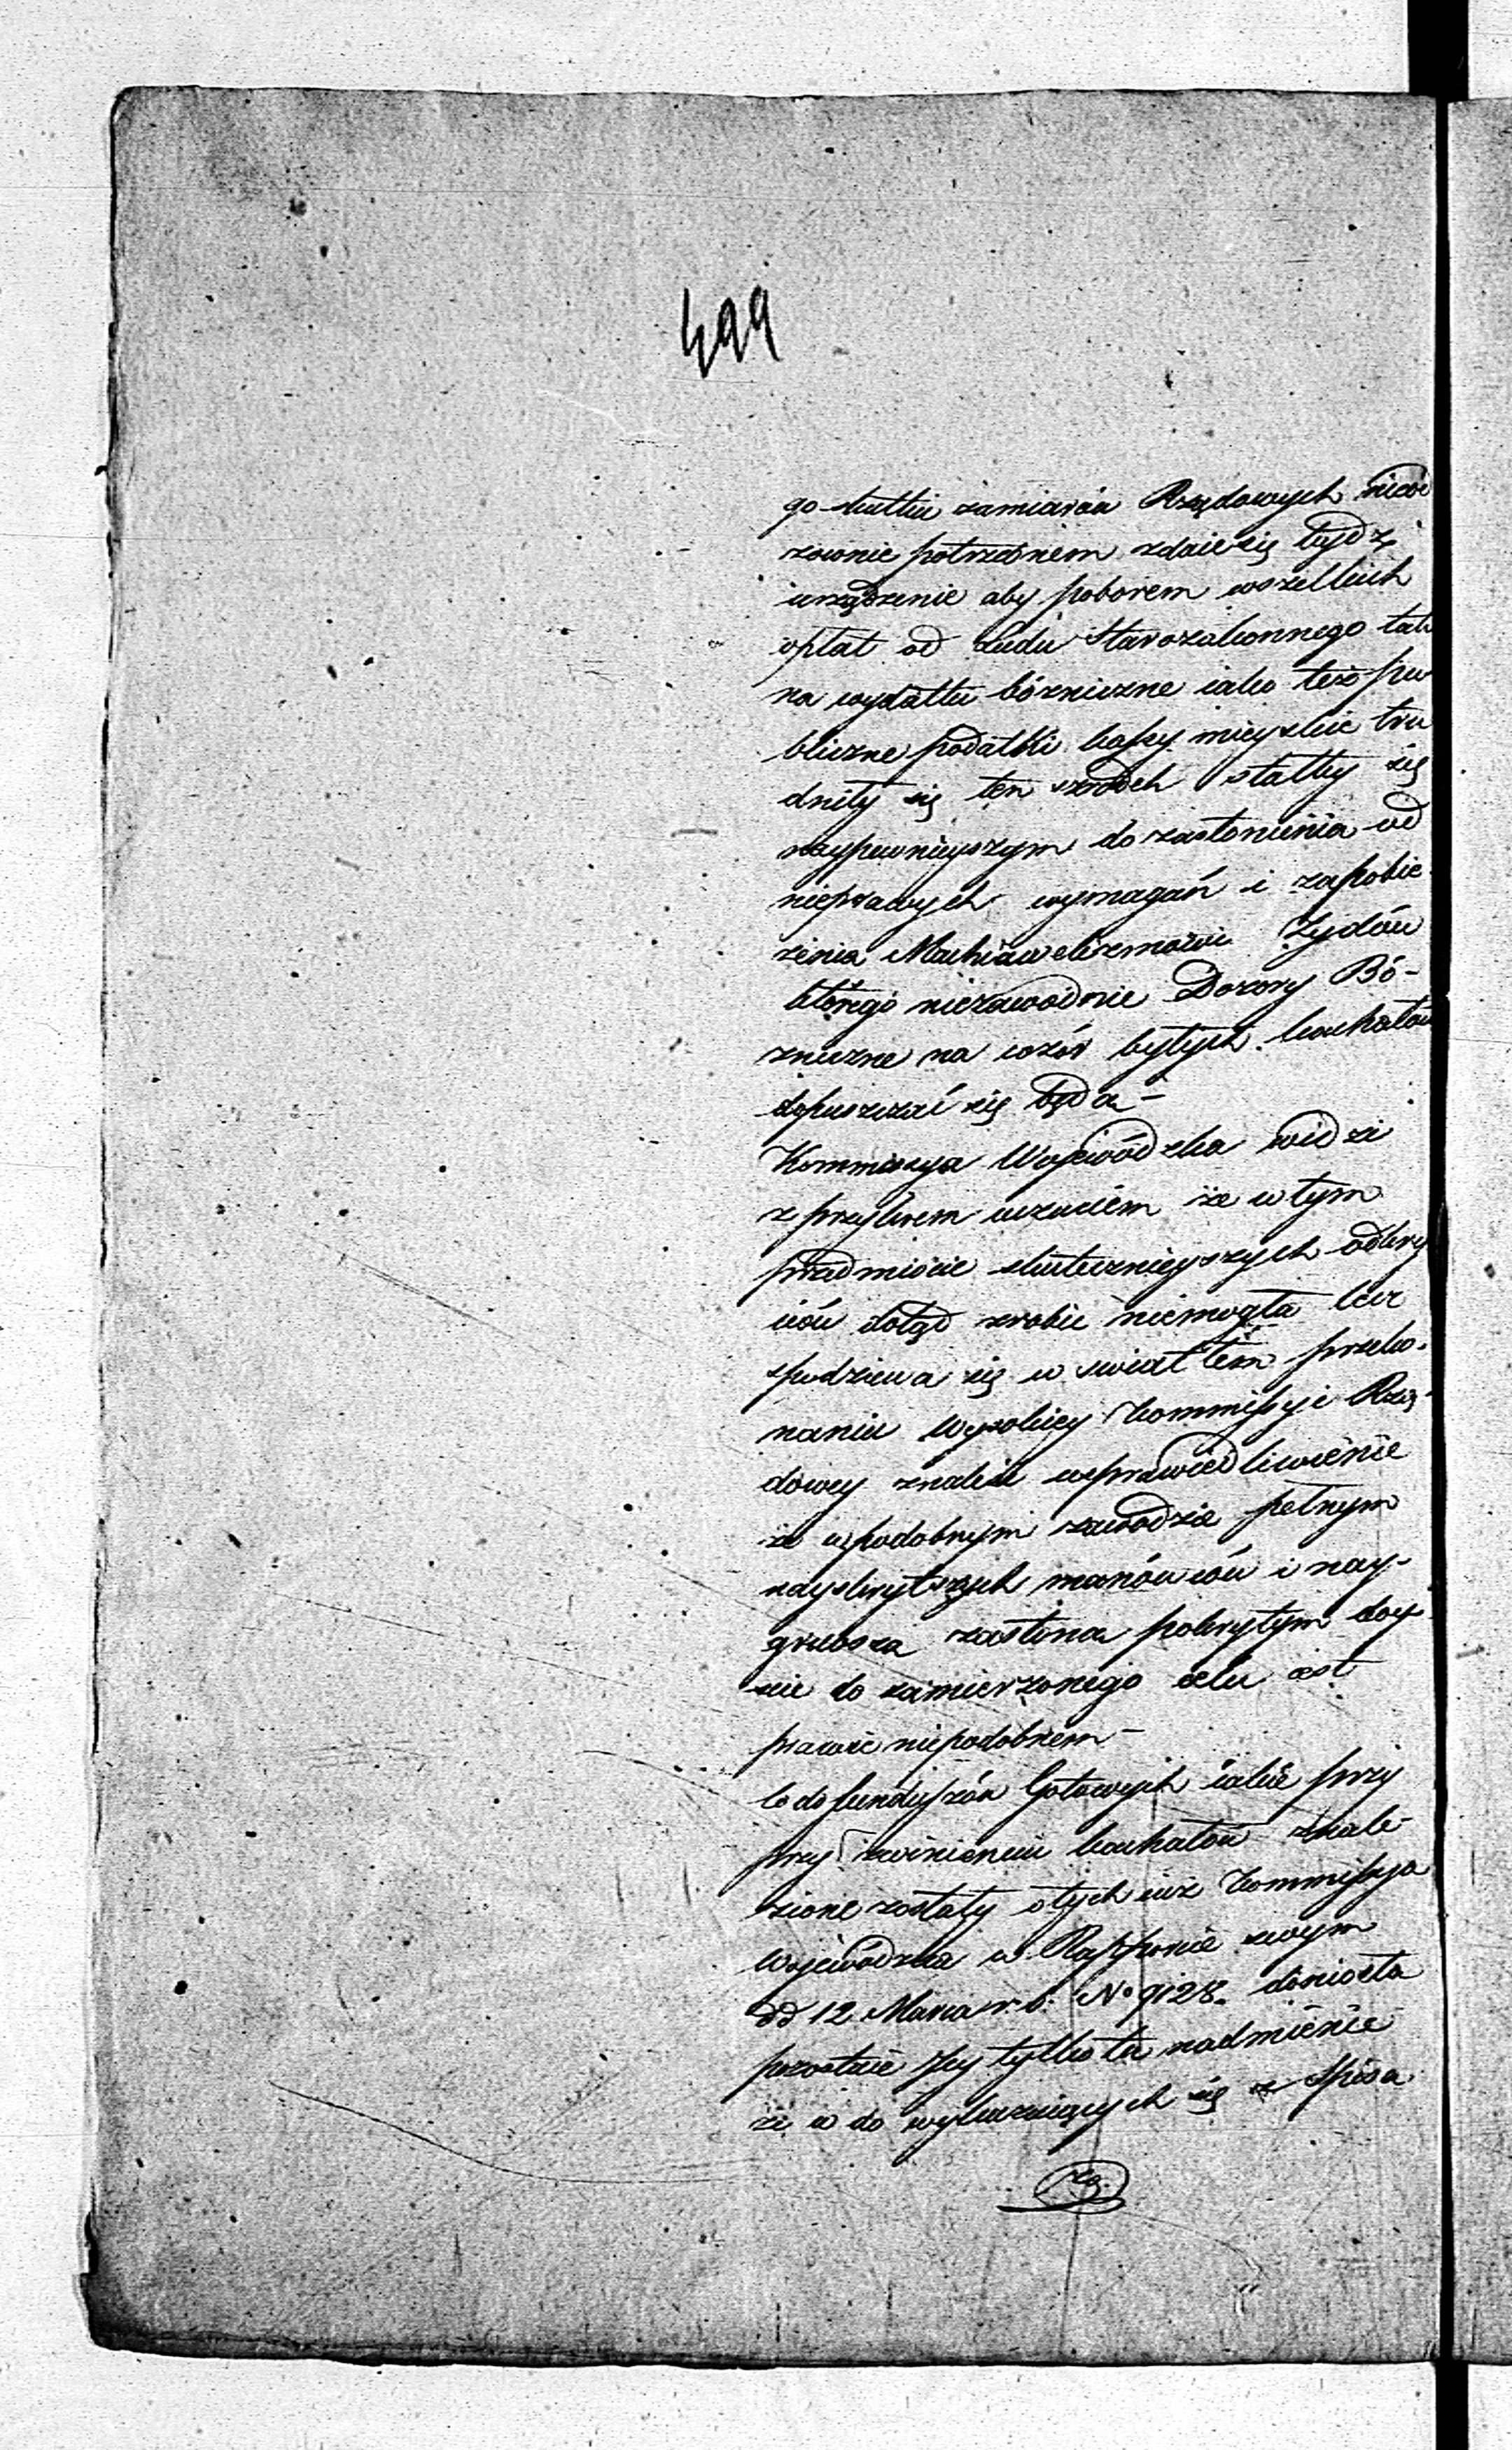 499
go skutku zamiarów Rządowych nieod
zownie potrzebnem zdaie się bydź
urządzenie aby poborem wszelkich
opłat od Ludu Starozakonnego tak
na wydatki bóżnicze iako też pu
bliczne podatki kassy mieyskie tru
dniły się ten szrodek stałby się
naypewnieyszym do zasłonienia od
nieprawych wymagań i zapobie
żenia Machiawelizmowi Żydów
którego niezawodnie Dozory Bó-
żnicze na wzór byłych kachałów
dopuszczać się będą –
Kommissya Wojewódzka widzi
z przykrem uczuciem że w tym
przedmiocie skutecznieyszych odkry
ciów dotąd zrobić niemogła lecz
spodziewa się w światłem przeko-
naniu Wysokiey Kommissyi Rzą
dowey znaleść usprawiedliwienie
że w podobnym zawodzie pełnym
nayskrytszych manówców i nay-
grubszą zasłoną pokrytym doy-
ście do zamierzonego celu iest
prawie niepodobnem –
Co do funduszów Gotowych iakie przy
przy zwinieniu kachałów znale-
zione zostały o tych iuż Kommissya
Wojewódzka w Rapporcie swym
dd 12 Marca r. b. No 9128. doniosła
pozostaie Jey tylko tu nadmienić
że co do wykazuiących się z Spisa